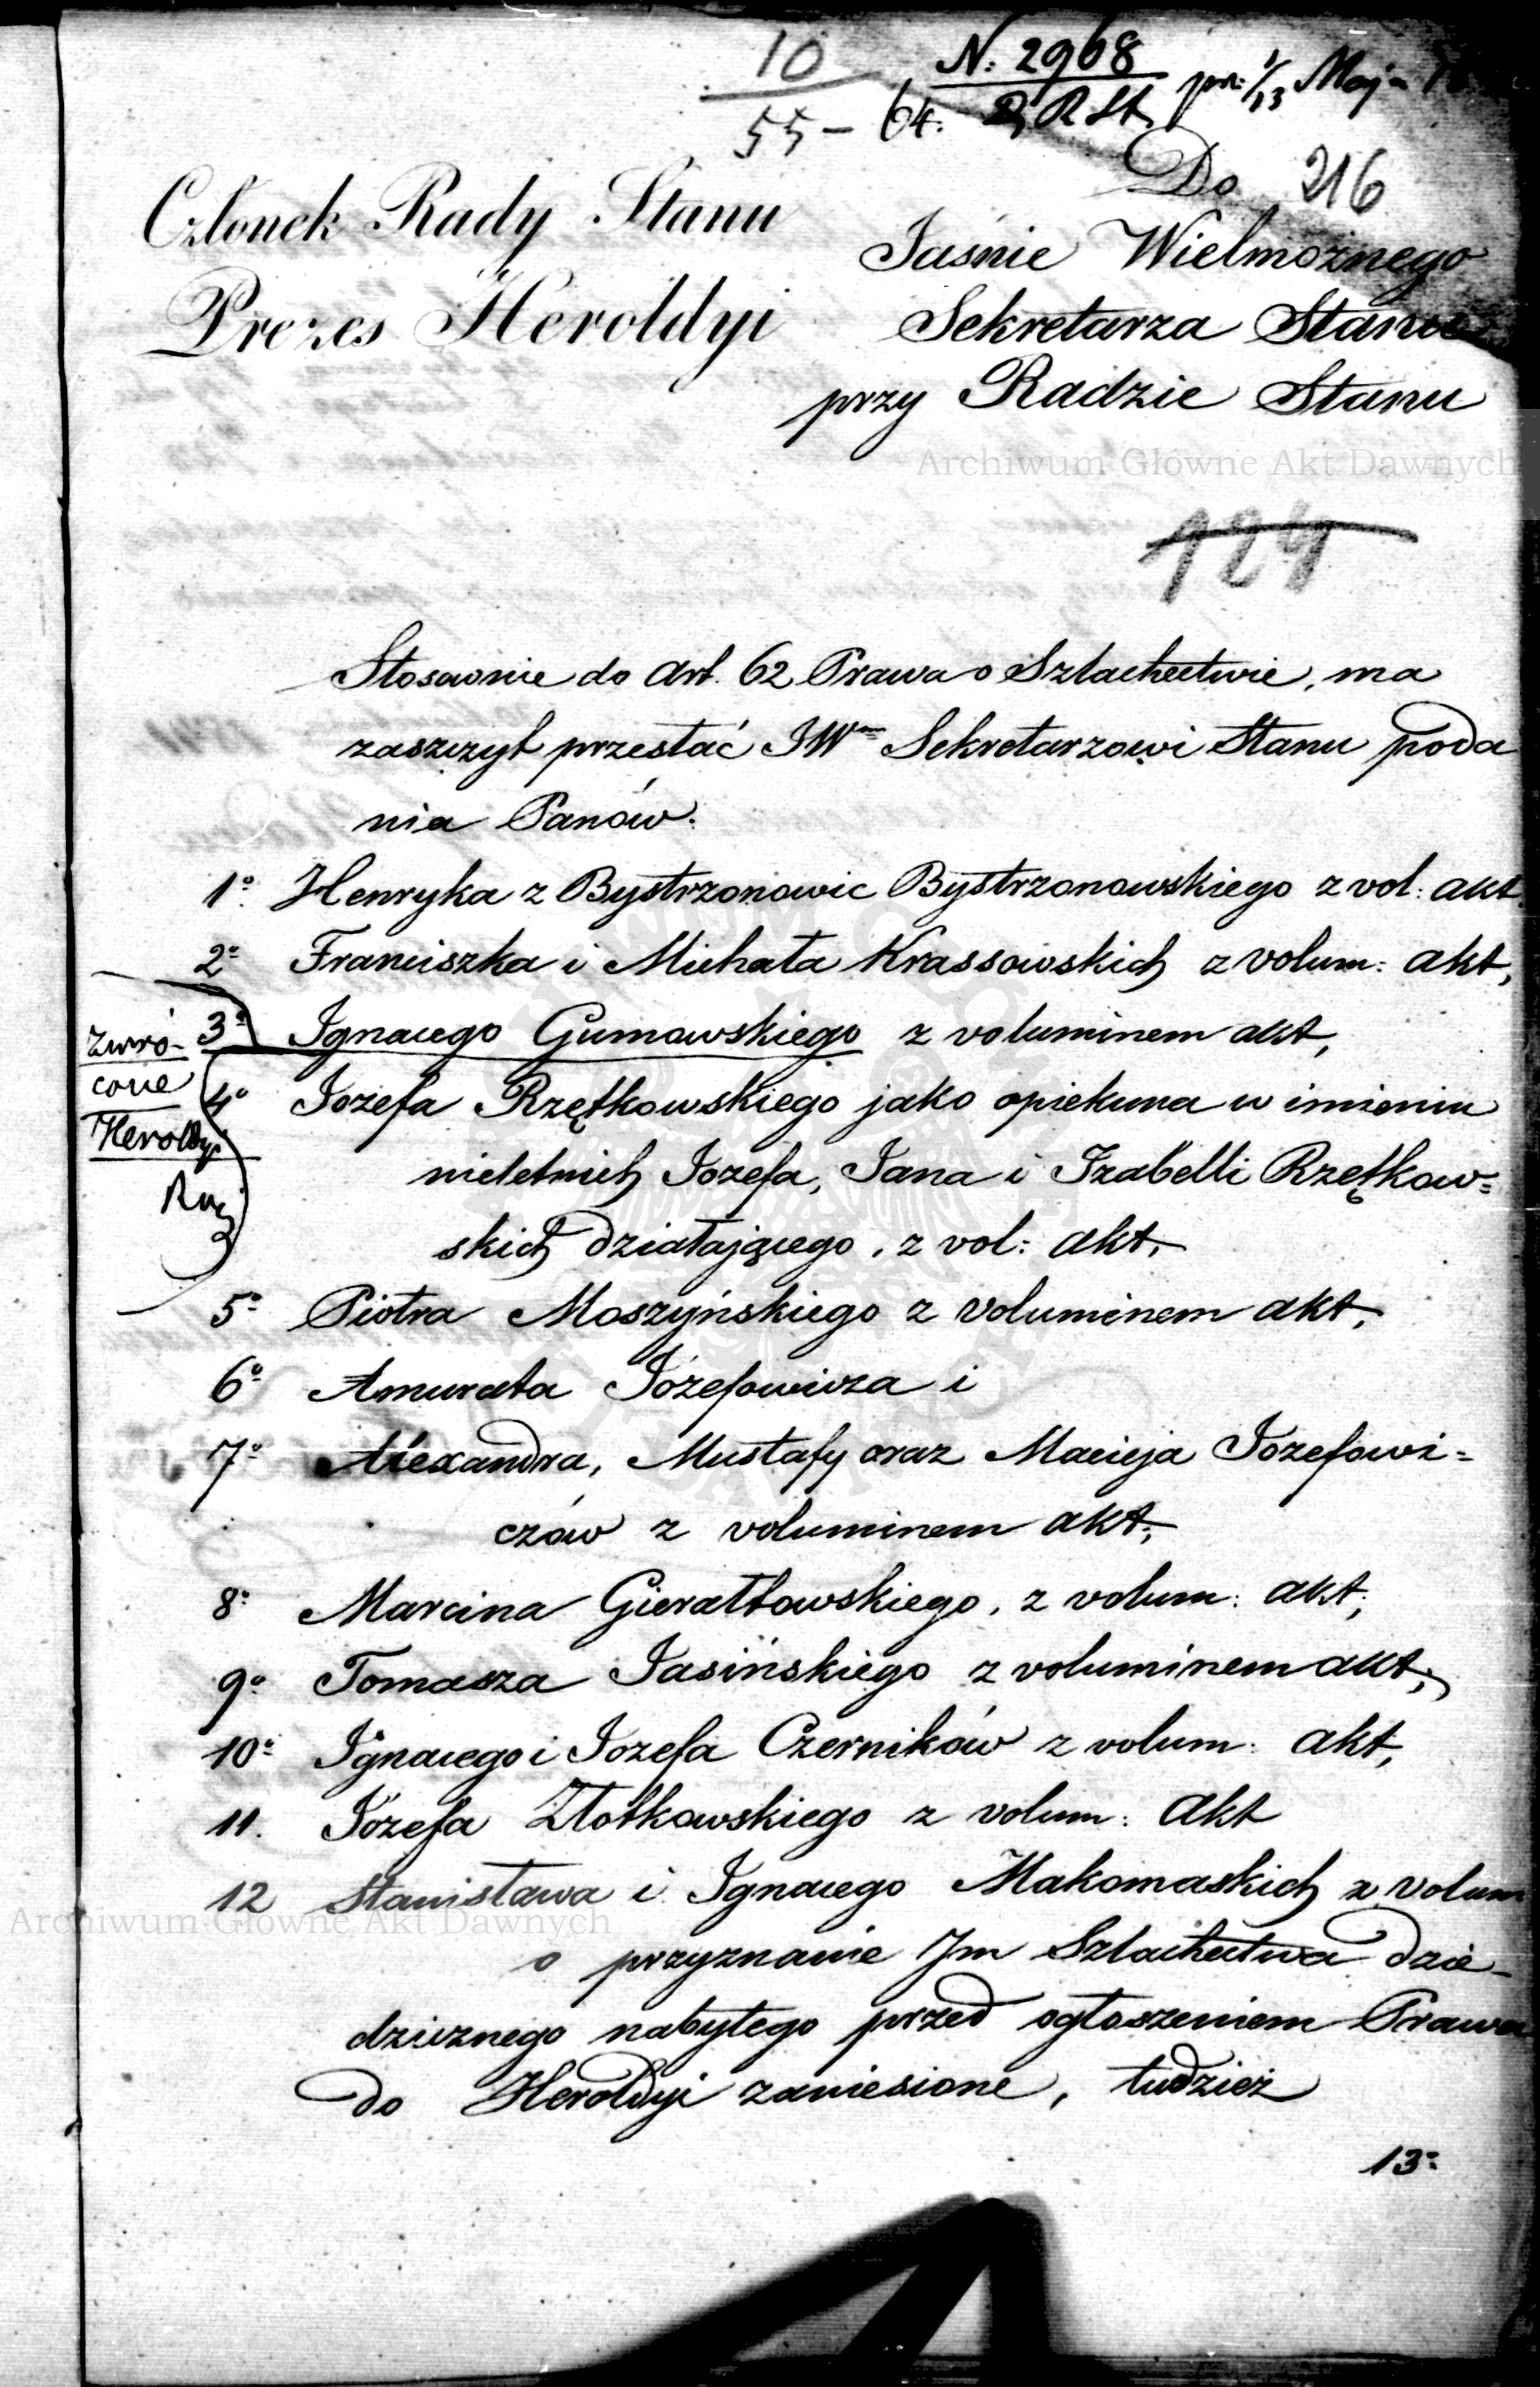 10
55 - 64.
N: 2968
R St. pr: 1/13 Maj
Do 216
Członek Rady Stanu
Prezes Heroldyi
Jaśnie Wielmożnego
Sekretarza Stanu
przy Radzie Stanu
Archiwum Główne Akt Dawnych
124
Stosownie do Art. 62 Prawa o Szlachectwie, ma
zaszczyt przesłać JWmu Sekretarzowi Stanu poda
nia Panów.
1o Henryka z Bystrzonowic Bystrzonowskiego z vol: akt.
2o Franciszka i Michała Krassowskich z volum: akt,
3o Ignacego Gumowskiego z voluminem akt,
Zwró-
cone
Heroldyi
4o Jozefa Rzętkowskiego jako opiekuna w imieniu
nieletnich Jozefa, Jana i Izabelli Rzętkow=
skich działającego, z vol: akt,
5o Piotra Moszyńskiego z voluminem akt,
6o Amurata Józefowicza i
7o Alexandra, Mustafy oraz Macieja Jozefowi=
czów z voluminem akt;
8o Marcina Gierałtowskiego, z volum: akt;
9o Tomasza Jasińskiego z voluminem akt;
10o Ignacego i Jozefa Czerników z volum: akt,
11. Józefa Złotkowskiego z volum: akt
12 Stanisława i Ignacego Makomaskich z volum
Archiwum Główne Akt Dawnych
o przyznanie Im Szlachectwa dzie-
dzicznego nabytego przed ogłoszeniem Prawa
do Heroldyi zaniesione, tudzież
13o